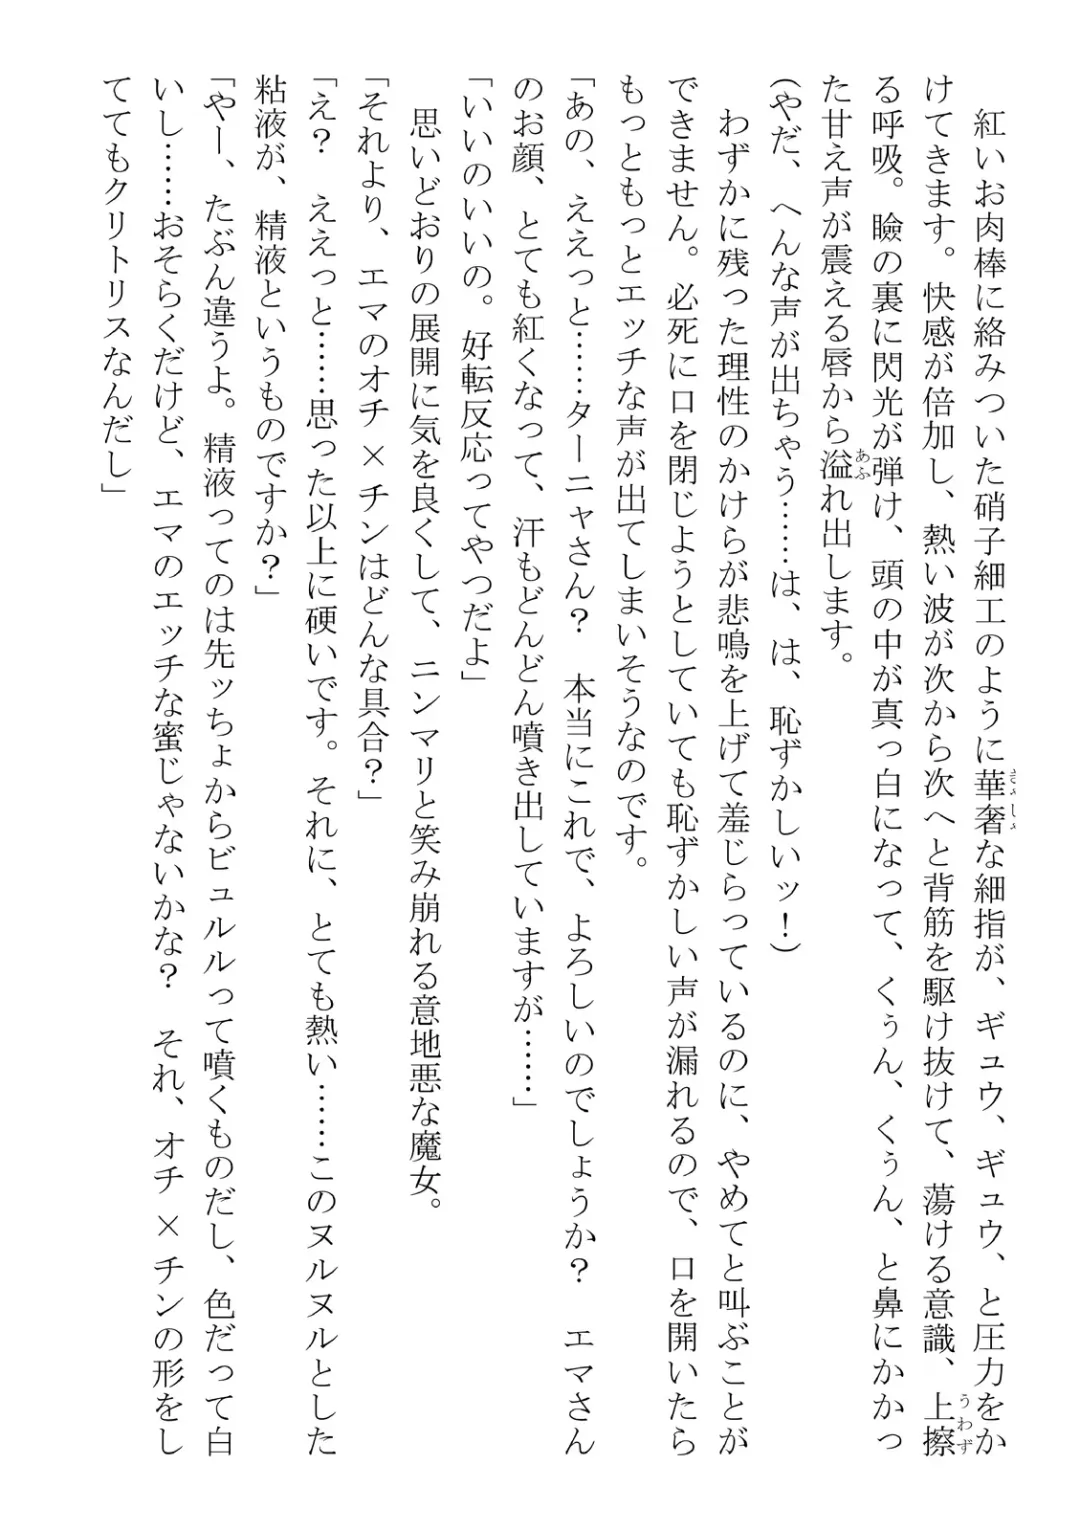 きゃしゃ
紅いお肉棒に絡みついた硝子細工のように華奢な細指が、ギュウ、ギュウ、と圧力をか
うわず
けてきます。快感が倍加し、熱い波が次から次へと背筋を駆け抜けて、蕩ける意識、上擦
る呼吸。瞼の裏に閃光が弾け、頭の中が真っ白になって、くぅん、くぅん、と鼻にかかっ
あふ
た甘え声が震える唇から溢れ出します。
(やだ、へんな声が出ちゃう……は、は、恥ずかしいッ!)
わずかに残った理性のかけらが悲鳴を上げて羞じらっているのに、やめてと叫ぶことが
できません。必死に口を閉じようとしていても恥ずかしい声が漏れるので、口を開いたら
もっともっとエッチな声が出てしまいそうなのです。
「あの、ええっと……ターニャさん? 本当にこれで、よろしいのでしょうか? エマさん
のお顔、とても紅くなって、汗もどんどん噴き出していますが……」
「いいのいいの。好転反応ってやつだよ」
思いどおりの展開に気を良くして、ニンマリと笑み崩れる意地悪な魔女。
「それより、エマのオチ×チンはどんな具合?」
「え? ええっと……思った以上に硬いです。それに、とても熱い……このヌルヌルとした
粘液が、精液というものですか?」
「やー、たぶん違うよ。精液ってのは先ッちょからビュルルって噴くものだし、色だって白
いし……おそらくだけど、エマのエッチな蜜じゃないかな? それ、オチ×チンの形をし
ててもクリトリスなんだし」